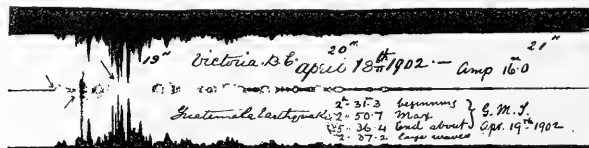 19ʰ 20ʰ 21ʰ
Victoria. B.C. April 18ᵗʰ 1902. — Amp 16.0
Guatemala Earthquake
2ʰ - 31.3 beginning
2 - 50.7 Max
5 - 36.4 End about
2 - 37.2 large waves
G.M.T.
Apr. 19ᵗʰ 1902.